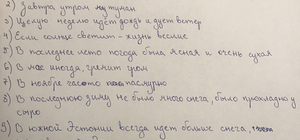 2) Завтра утром туман
3) Целую неделю идёт дождь и дует ветер
4) Если солнце светит - жизнь веселее
5) В последнее лето погода была ясная и очень сухая
6) В мае иногда, гремит гром
7) В ноябре часто пасмурно
8) В последнюю зиму не было много снега, было прохладно и
сыро
9) В южной Эстонии всегда идёт больше снега,